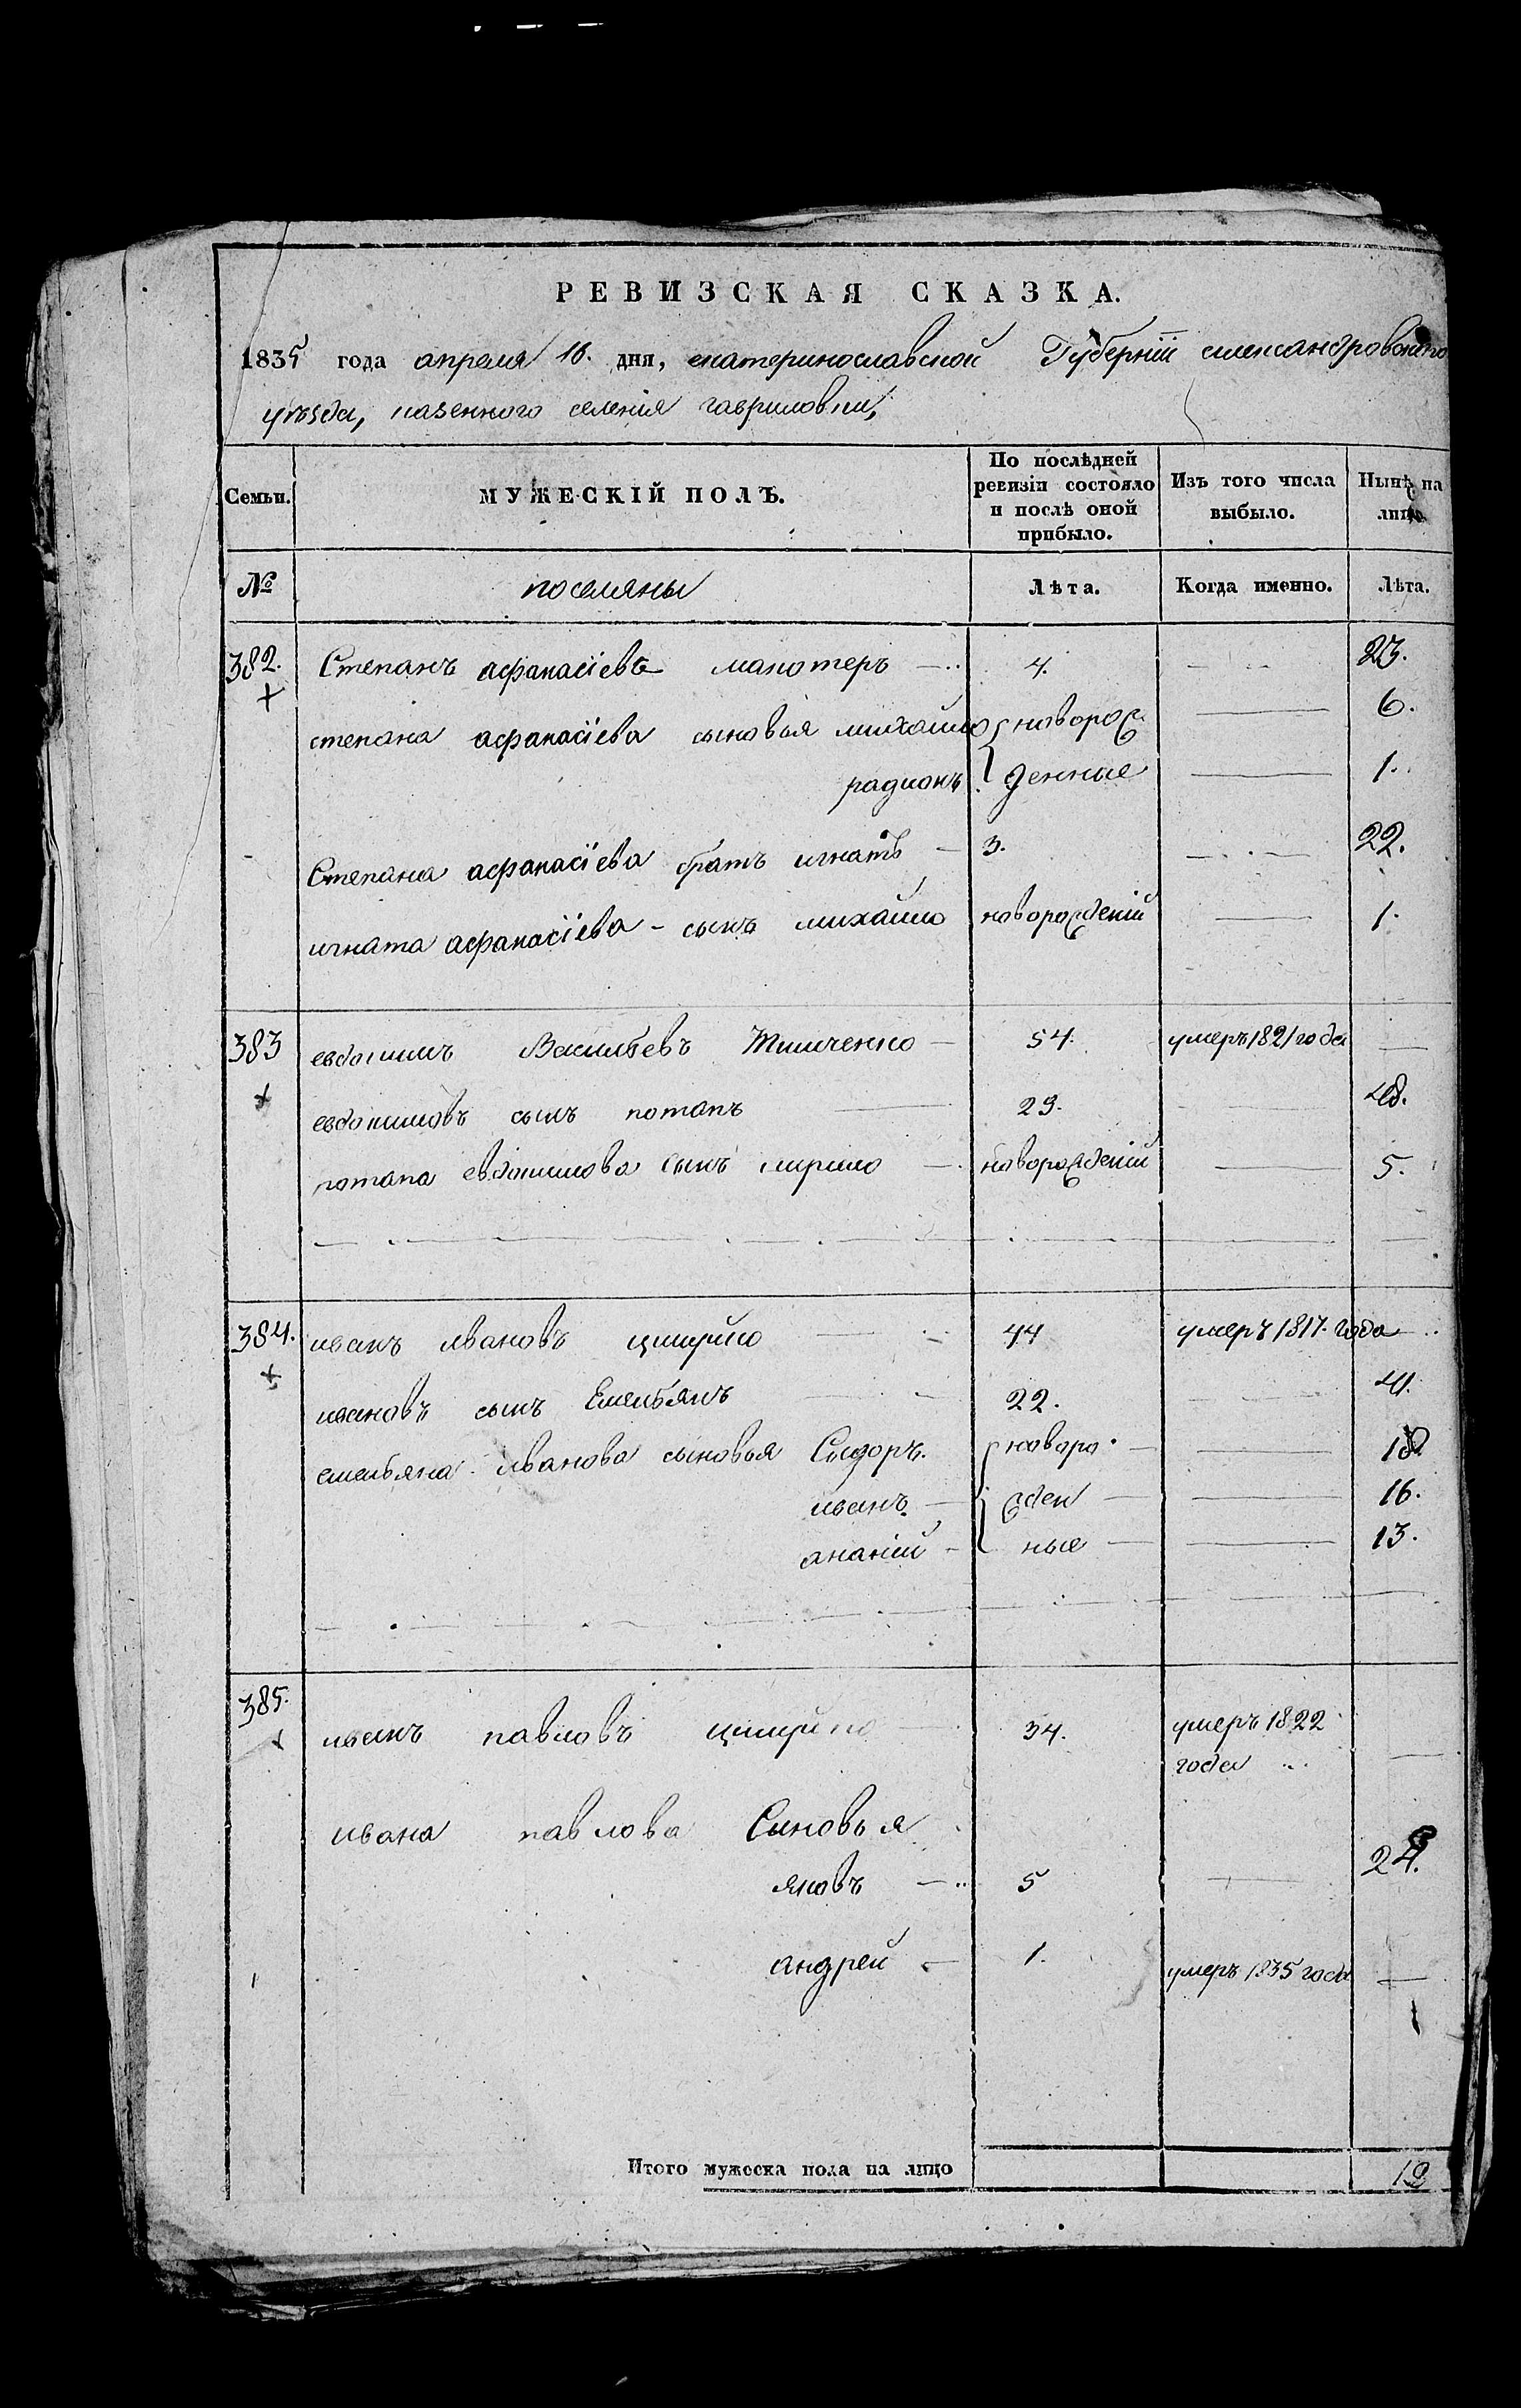 РЕВИЗСКАЯ СКАЗКА.
1835 года апреля 16. дня, екатеринославской Губерніи александровского
уѣзда, казенного селенія гавриловки,
Семьи. МУЖЕСКІЙ ПОЛЪ. По послѣдней ревизіи состояло и послѣ оной прибыло. Изъ того числа выбыло. Нынѣ на лицо.
№ поселяны Лѣта. Когда именно. Лѣта.
382. Степанъ афанасіевъ макотеръ 4. 23.
степана афанасіева сыновья михайло новорож 6.
радионъ денные 1.
Степана афанасіева братъ игнатъ 3. 22.
игната афанасіева - сынъ михайло новорожденій 1.
383 евдокимъ Васильевъ Тимченко 54. умеръ 1821 года
евдокимовъ сынъ потапъ 29. 48.
потапа евдокимова сынъ кирило новорожденій 5.
384. иванъ ивановъ цімуйко 44 умеръ 1817. года
ивановъ сынъ Емельянъ 22. 41.
емельяна ивановa сыновья Сидоръ. новоро 18
иванъ жден 16.
ананій ные 13.
385. иванъ павловъ 34. умеръ 1822
года
ивана павлова Синовья
яковъ 5 24.
андрей 1. умеръ 1835 года
Итого мужеска пола на лицо 12